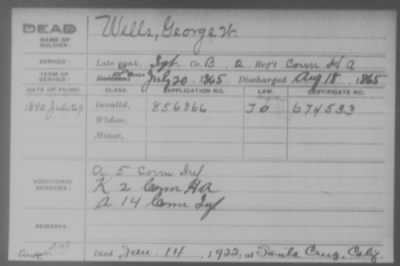 DEAD
NAME OF SOLDIER:
Wells, George W.
SERVICE: Late rank, Sgt. Co. B, 2 Reg't Conn H A
TERM OF SERVICE: July 20, 1865 Discharged Aug 18, 1865
DATE OF FILING. CLASS. APPLICATION NO. LAW. CERTIFICATE NO.
1890 Invalid, 856366 674533
Widow,
Minor,
ADDITIONAL SERVICES:
A 5 Conn Inf
K 2 Conn HA
A 14 Conn Inf
REMARKS:
Died Jan. 14, 1922, at Santa Cruz, Calif.